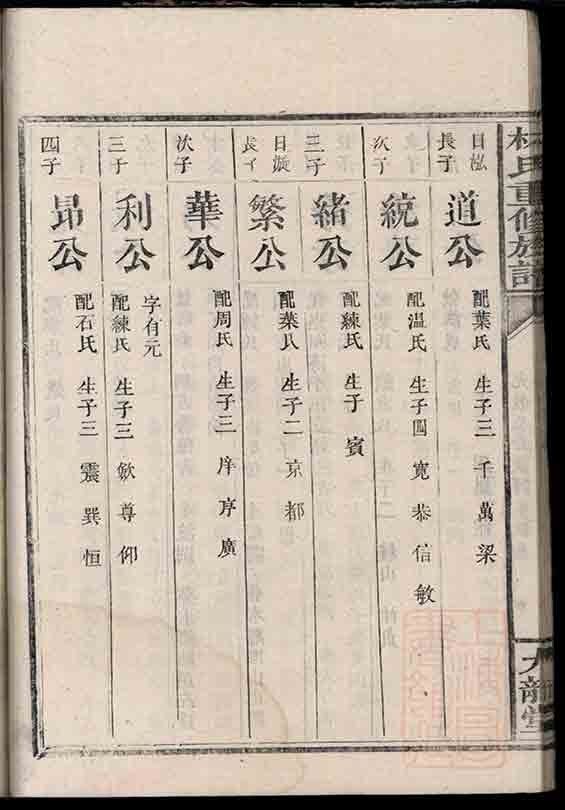 林氏重修族譜
九龍堂
日泓
長子
道公
配葉氏 生子三 千 萬 梁
次子
統公
配温氏 生子四 寬 恭 信 敏
三子
緒公
配練氏 生子 賓
日旋
長子
繁公
配葉氏 生子二 京 都
次子
華公
配周氏 生子三 庠 序 廣
三子
利公
字有元
配練氏 生子三 欽 尊 仰
四子
昂公
配石氏 生子三 震 巽 恒